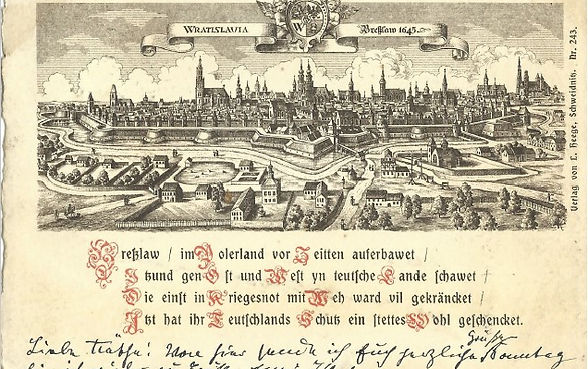 WRATISLAVIA
Breßlaw 1645.
Verlag von L. Heege, Schweidnitz. Nr. 243.
Breßlaw / im Polerland vor Zeitten auferbawet /
Itzund gen Ost und West yn teutsche Lande schawet /
Die einst in Kriegesnot mit Weh ward vil gekräncket /
Itzt hat ihr Teutschlands Schutz ein stettes Wohl geschencket.
Liebe Käthe! Von hier sende ich Euch herzliche Sonntag
Grüße